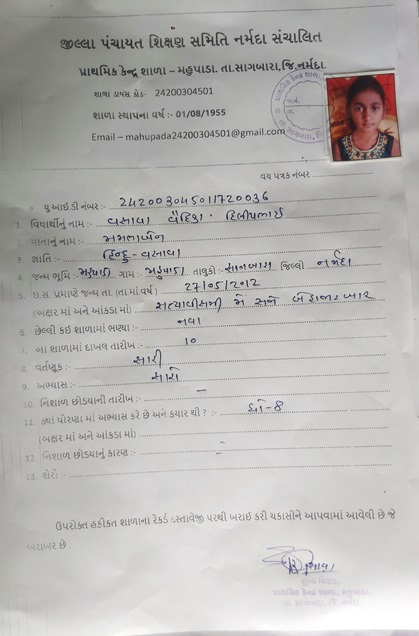 જીલ્લા પંચાયત શિક્ષણ સમિતિ નર્મદા સંચાલિત
પ્રાથમિક કેન્દ્ર શાળા - મહુપાડા. તા.સાગબારા,જિ.નર્મદા.
શાળા ડાયસ કોડ:- 24200304501
શાળા સ્થાપના વર્ષ :- 01/08/1955
Email – mahupada24200304501@gmail.com
વય પત્રક નંબર
યુ આઈ ડી નંબર :- 242003045011720036
1. વિધાર્થીનું નામ :- વસાવા વૈદિકા દિલીપભાઈ
2. માતાનું નામ :-
3. જ્ઞાતિ :- હિન્દુ - વસાવા
4. જન્મ ભૂમિ :- મહુપાડા ગામ :- મહુપાડા તાલુકો :- સાગબારા જિલ્લો નર્મદા
5. ઇ.સ. પ્રમાણે જન્મ તા. (તા માં વર્ષ) 27/05/2012
(અક્ષર માં અને આંકડા માં) સત્યાવીસમી મે સને બે હજાર બાર
6. છેલ્લી કઇ શાળામાં ભણ્યા :- નવા
7. આ શાળામાં દાખલ તારીખ :- 10
8. વર્તણુક :- સારી
9. અભ્યાસ :- સારો
10. નિશાળ છોડયાની તારીખ :- –
11. ક્યાં ધોરણા માં અભ્યાસ કરે છે અને કયાર થી ? :- ધો-8
(અક્ષર માં અને આંકડા માં)
12. નિશાળ છોડયાનું કારણ :- –
13. શેરો :-
ઉપરોક્ત હકીકત શાળાના રેકર્ડ દસ્તાવેજી પરથી ખરાઇ કરી ચકાસીને આપવામાં આવેલી છે જે
બરાબર છે .
મુખ્ય શિક્ષક,
પ્રાથમિક કેન્દ્ર શાળા, મહુપાડા
તા. સાગબારા, જિ. નર્મદા.